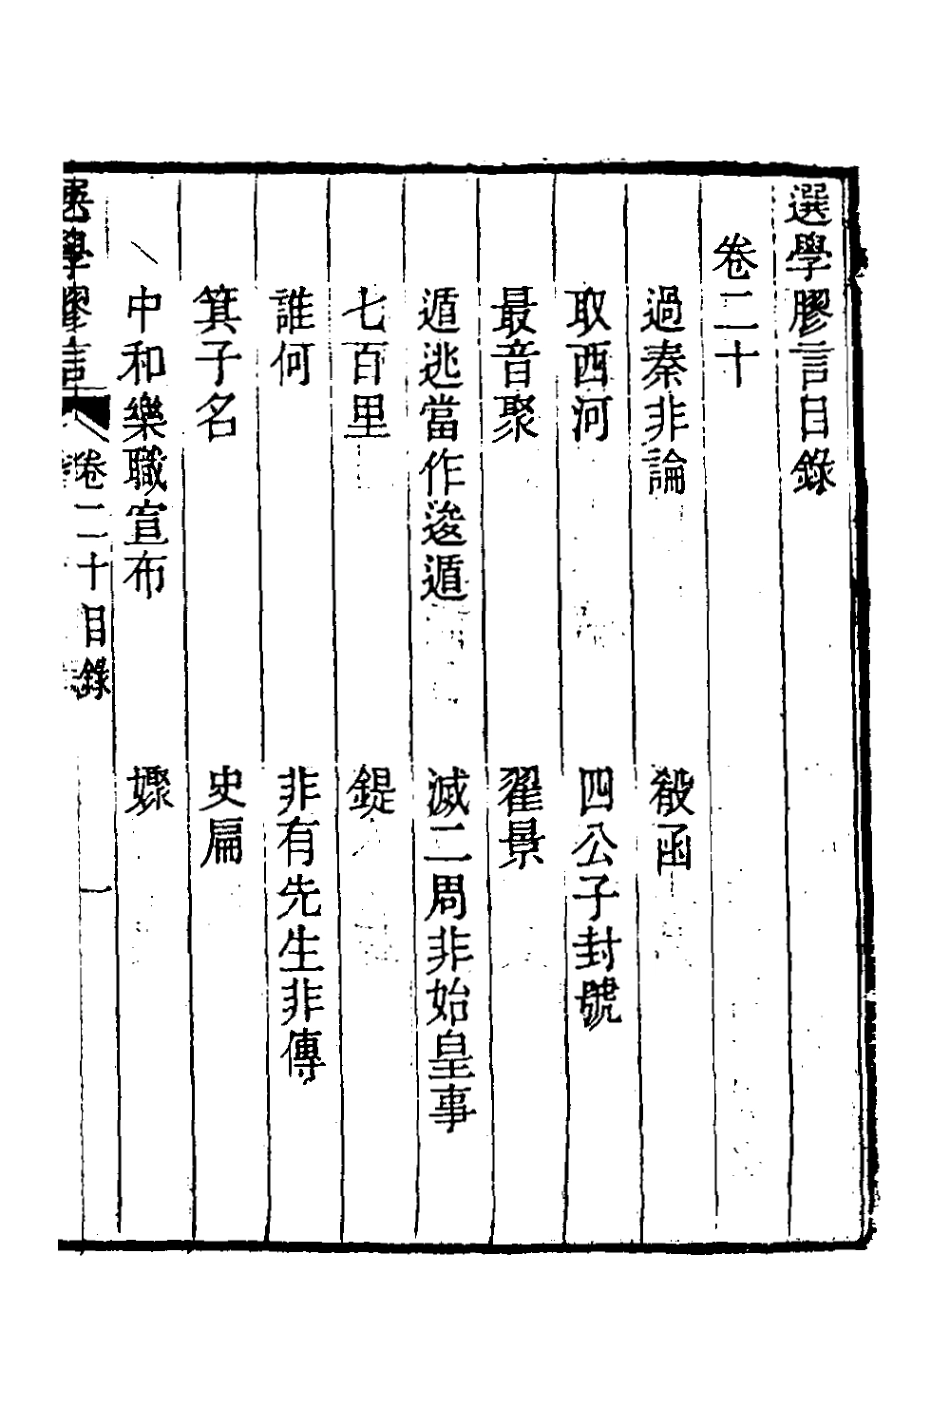 選學膠言目錄
卷二十
過秦非論　殽函
取西河　四公子封號
最音聚　翟景
遁逃當作逡遁　滅二周非始皇事
七百里　鍉
誰何　非有先生非傳
箕子名　史扁
中和樂職宣布　嫖
選學膠言　卷二十目錄　一